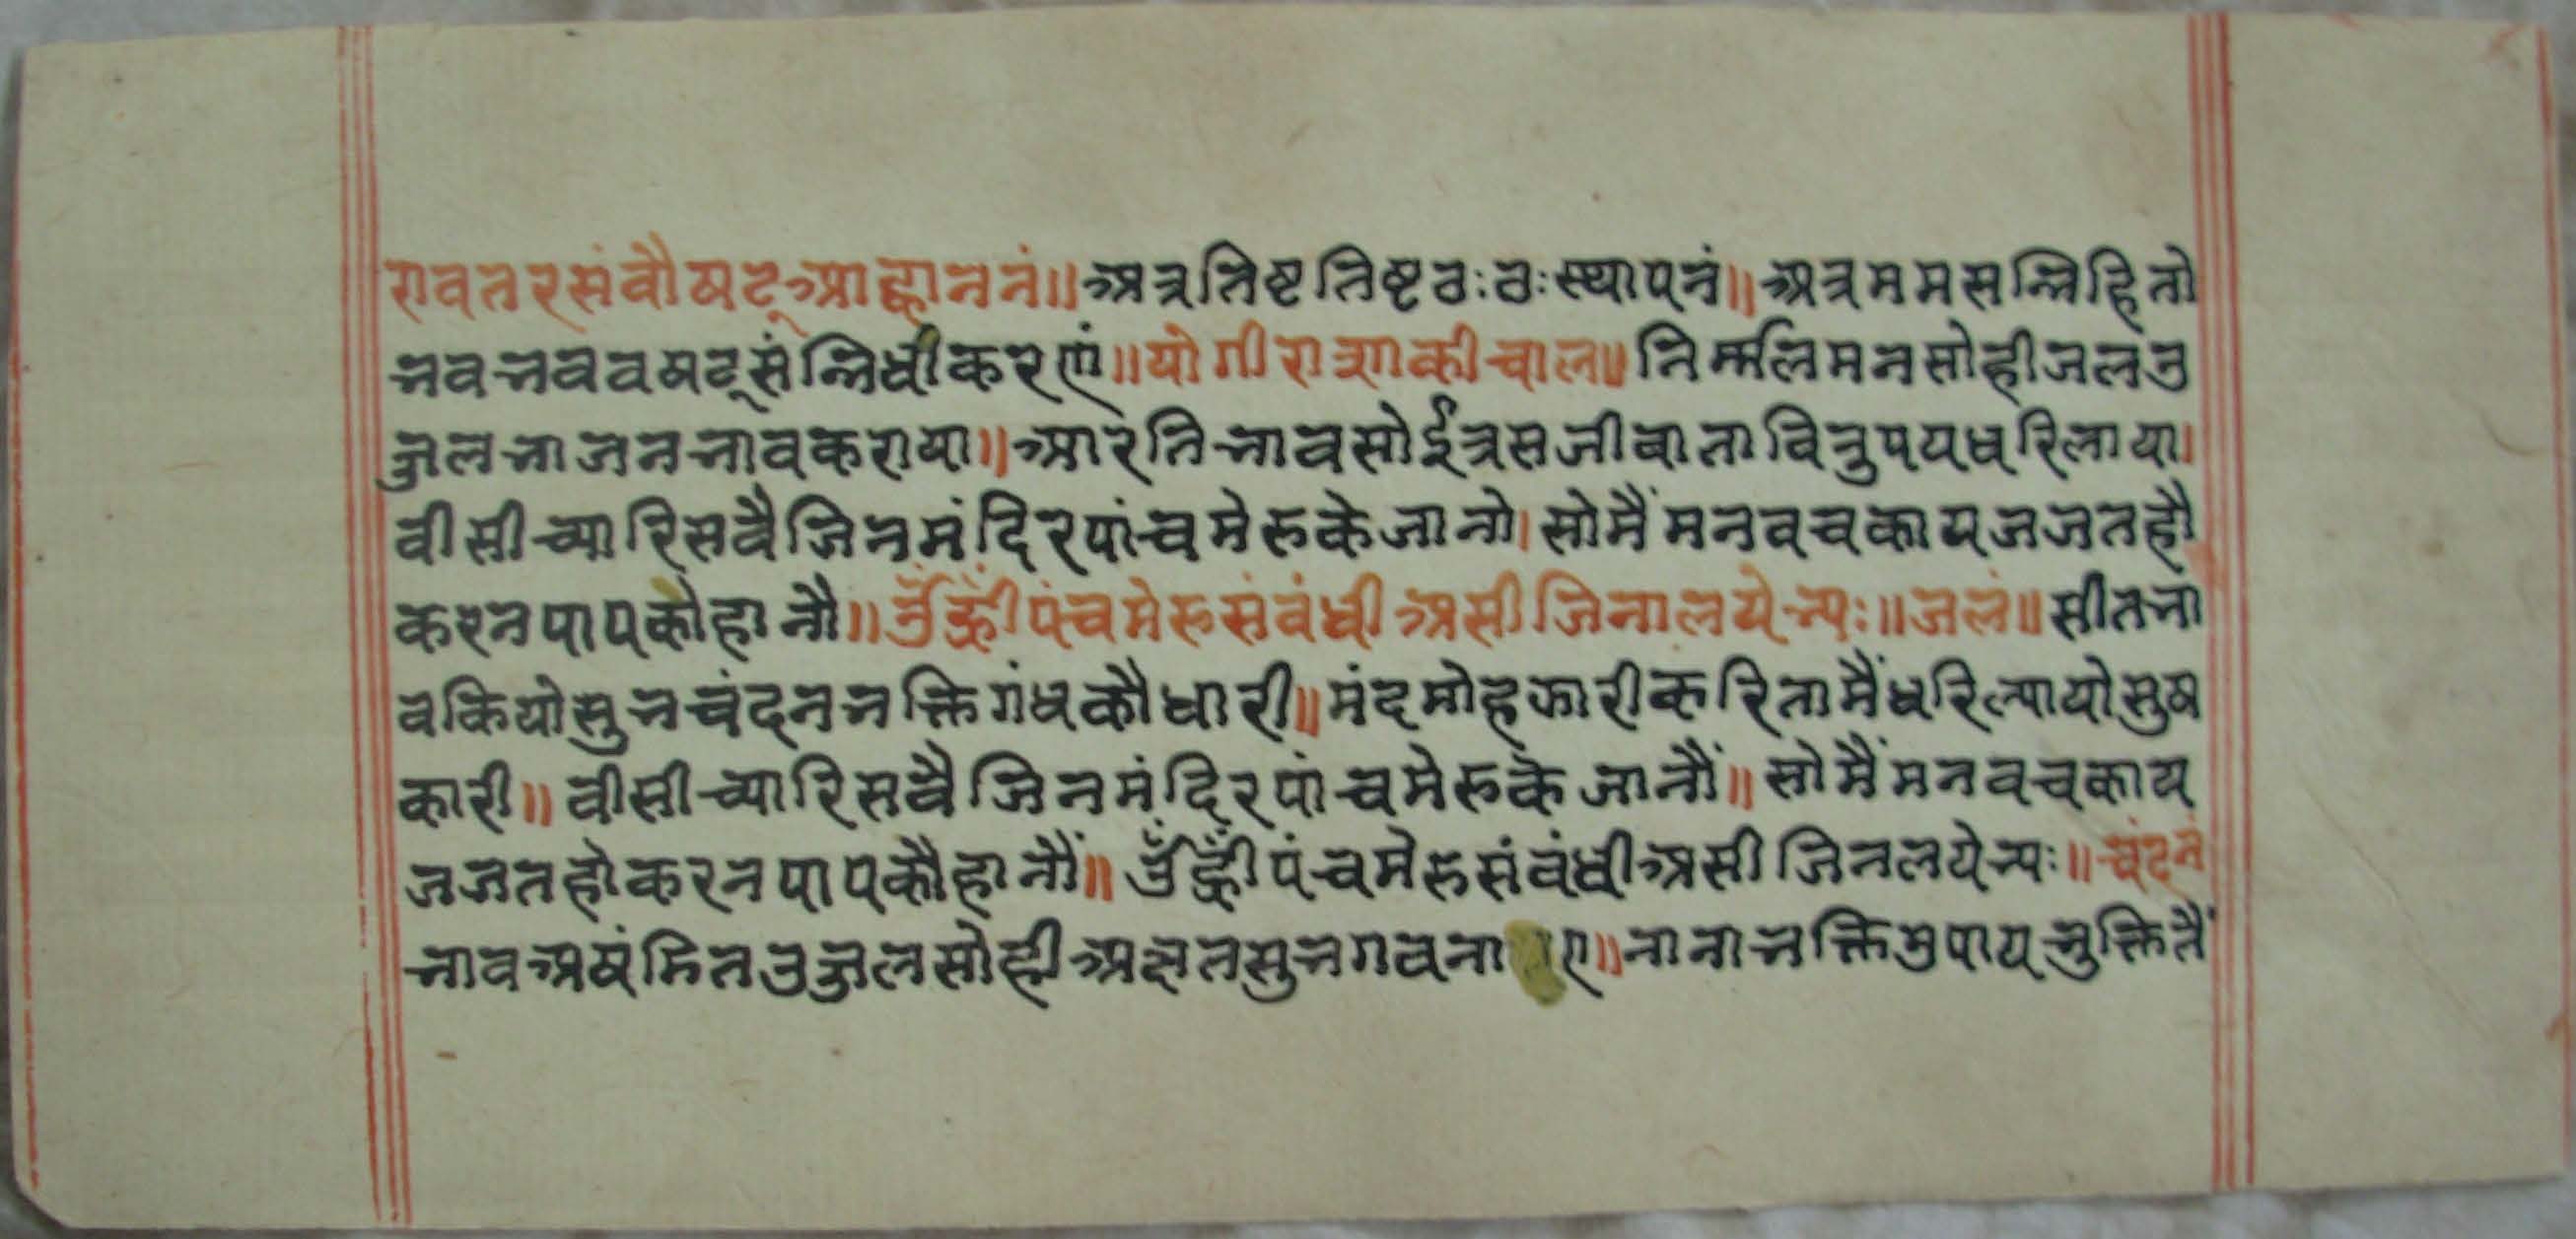 रावतरसंवौषट्आह्वाननं॥अत्रतिष्टतिष्टठःठःस्थापनं॥अत्रममसन्निहितो
भवभववषट्संन्निधीकरणं॥योगीरासाकीचाल॥निर्मलिमनसोहीजलउ
ज्जलभाजनभावकराया॥आरतिभावसोईत्रसजीवाताविनुपयधरिलाया।
वीसीच्यारिसवैजिनमंदिरपांचमेरुकेजानो।सोमैंमनवचकायजजतहौ
करनपापकोहानौ॥ॐह्रींपंचमेरुसंवंधीअसीजिनालयेभ्यः॥जलं॥सीतभा
वकियोसुभचंदनभक्तिगंधकौधारी॥मंदमोहझारीकरितामैंधरिल्यायोसुष
कारी॥वीसीच्यारिसवैजिनमंदिरपांचमेरुकेजानौं॥सोमैंमनवचकाय
जजतहोकरनपापकौहानौं॥ॐह्रींपंचमेरुसंवंधीअसीजिनलयेभ्यः॥चंदनं
भावअषंमितउज्जलसोहीअक्षतसुभगवना ए॥नानाभक्तिउपायभुक्तितैं